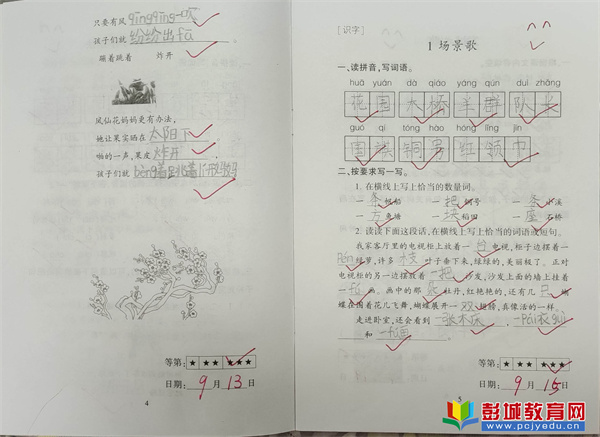 只要有风qīngqīng一吹
孩子们就纷纷出fā
蹦着跳着 炸开
凤仙花妈妈更有办法,
她让果实晒在太阳下
啪的一声,果皮炸开,
孩子们就bèng着跳着
等第: ★ ★★ ★★★
日期: 9 月 13 日
4
[识字]
1 场景歌
一、读拼音,写词语。
huā yuán dà qiáo yáng qún duì zhǎng
花园 大桥 羊群 队长
guó qí tóng hào hóng lǐng jīn
国旗 铜号 红领巾
二、按要求写一写。
1. 在横线上写上恰当的数量词。
一条帆船 一把铜号 一条小溪
一方鱼塘 一块稻田 一座石桥
2. 读读下面这段话,在横线上写上恰当的词语或短句。
我家客厅里的电视柜上放着一台电视,柜子边摆着一
pén绿萝,许多枝叶子垂下来,绿绿的,美丽极了。正对
电视柜的另一边摆放着一把沙发,沙发上面的墙上挂着
一fú画。画中的那牡丹,红艳艳的,还有几只蝴
蝶在围着花儿飞舞,蝴蝶展开一双翅膀,真像活的一样。
走进卧室,还会看到一张木床,一pái衣guì
和一fú画
等第: ★ ★★ ★★★
日期: 9 月 15 日
5
彭城教育网
www.pcjyedu.cn